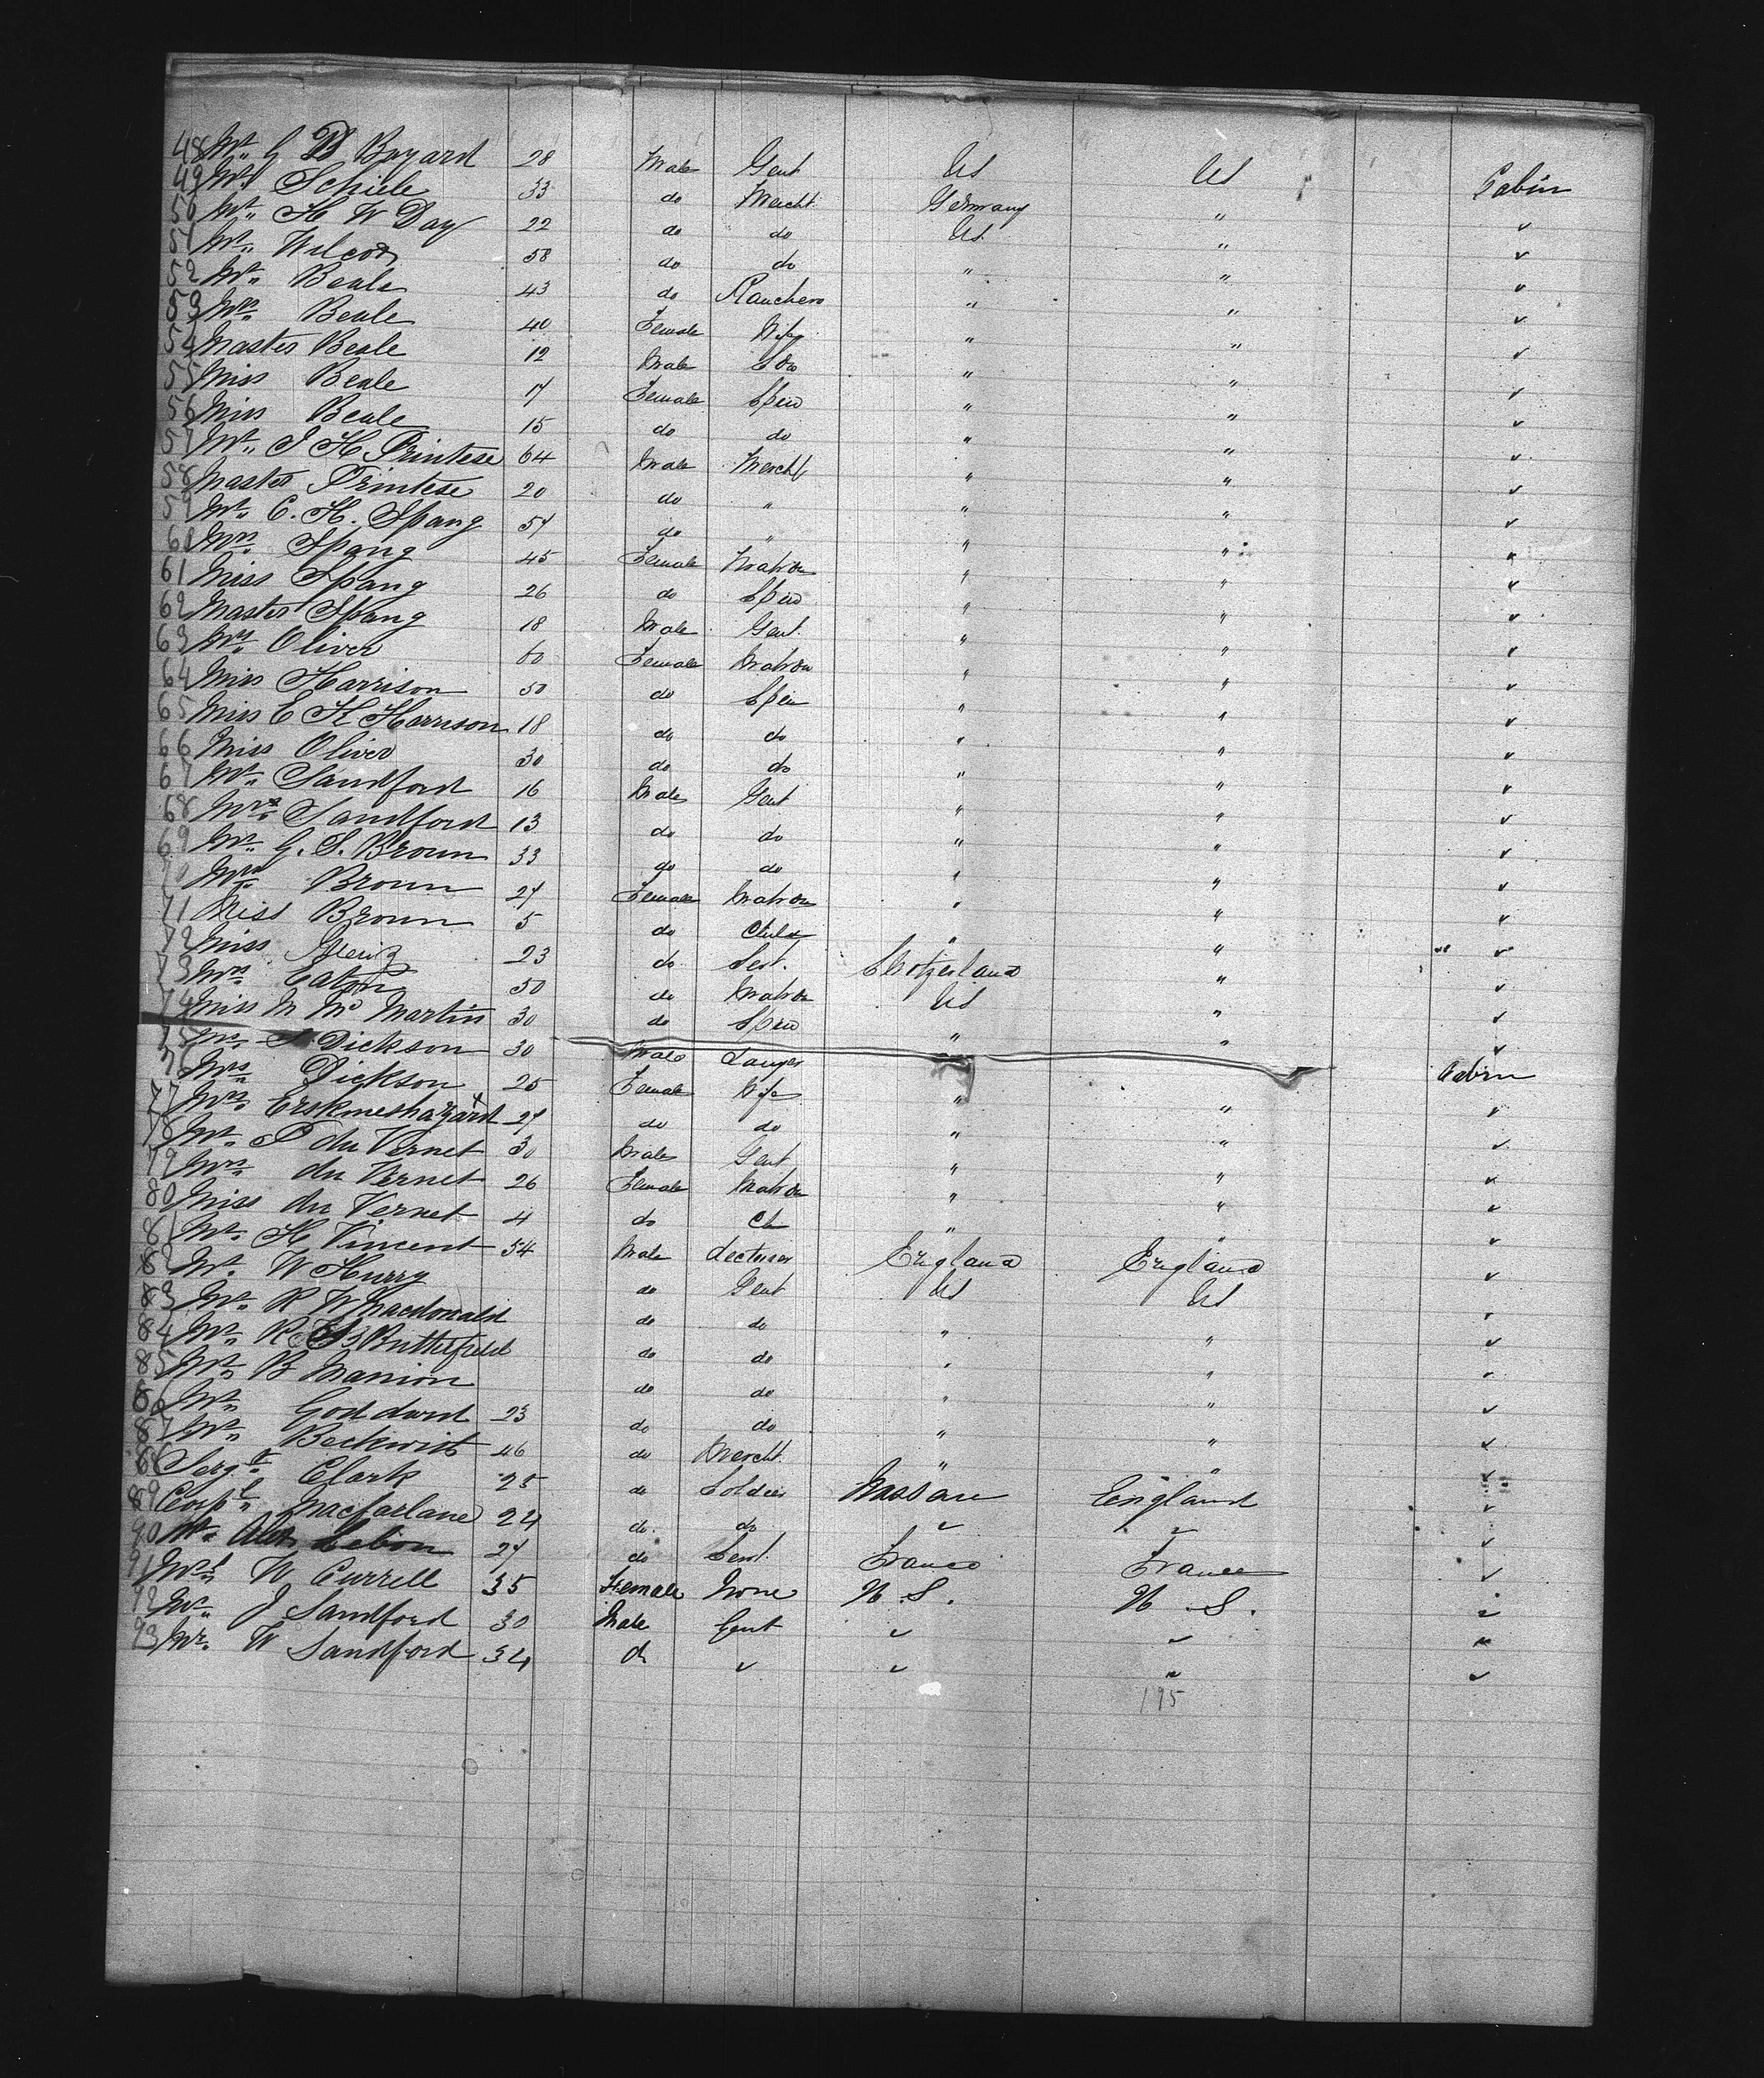 48 Mr. G B Bayard 28 Male Gent US US Cabin
49 Mr Schiele 33 do Mercht. Germany " "
50 Mr. H W Day 22 do do US. " "
51 Mr. Wilcox 58 do do " " "
52 Mr. Beale 43 do Ranchero " " "
53 Mrs. Beale 40 Female Wife " " "
54 Master Beale 12 Male Son " " "
55 Miss Beale 17 Female Spin " " "
56 Miss Beale 15 do do " " "
57 Mr. J H Printese 64 Male Mercht " " "
58 Master Printese 20 do " " " "
59 Mr. C. H. Spang 57 do " " " "
60 Mrs. Spang 45 Female Matron " " "
61 Miss Spang 26 do Spin " " "
62 Master Spang 18 Male Gent. " " "
63 Mrs. Oliver 60 Female Matron " " "
64 Miss Harrison 50 do Spin " " "
65 Miss E H Harrison 18 do do " " "
66 Miss Oliver 30 do do " " "
67 Mr. Sandford 16 Male Gent " " "
68 Mr. Sandford 13 do do " " "
69 Mr. G. S. Broun 33 do do " " "
70 Mrs. Broun 27 Female Matron " " "
71 Miss Broun 5 do Child " " "
72 Miss 23 do Sert. Switzerland " "
73 Mrs. Eaton 50 do Matron US " "
74 Miss M Mc Martin 30 do Spin " " "
75 Mr. Dickson 30 Male Lawyer " " Cabin
76 Mrs. Dickson 25 Female Wife " " "
77 Mrs. Erskineshazard 27 do do " " "
78 Mr. P du Vernet 30 Male Gent " " "
79 Mrs. du Vernet 26 Female Matron " " "
80 Miss du Vernet 4 do Ch " " "
81 Mr. H Vincent 54 Male Lecturer England England "
82 Mr. W Hurry do Gent US US "
83 Mr. R W Macdonald do do " " "
84 Mr. R Butterfield do do " " "
85 Mr. B Manion do do " " "
86 Mr. Goddard 23 do do " " "
87 Mr. Beckwith 46 do Mercht. " " "
88 Sergt. Clark 25 do Soldier Nassau England "
89 Corpl. Macfarlane 24 do. do " " "
90 Mr. Alex Lebon 27 do Servt. France France "
91 Mrs. W Currell 35 Female None U. S. U. S. "
92 Mr. J Sandford 30 Male Gent " " "
93 Mr. W Sandford 34 do " " " "
195